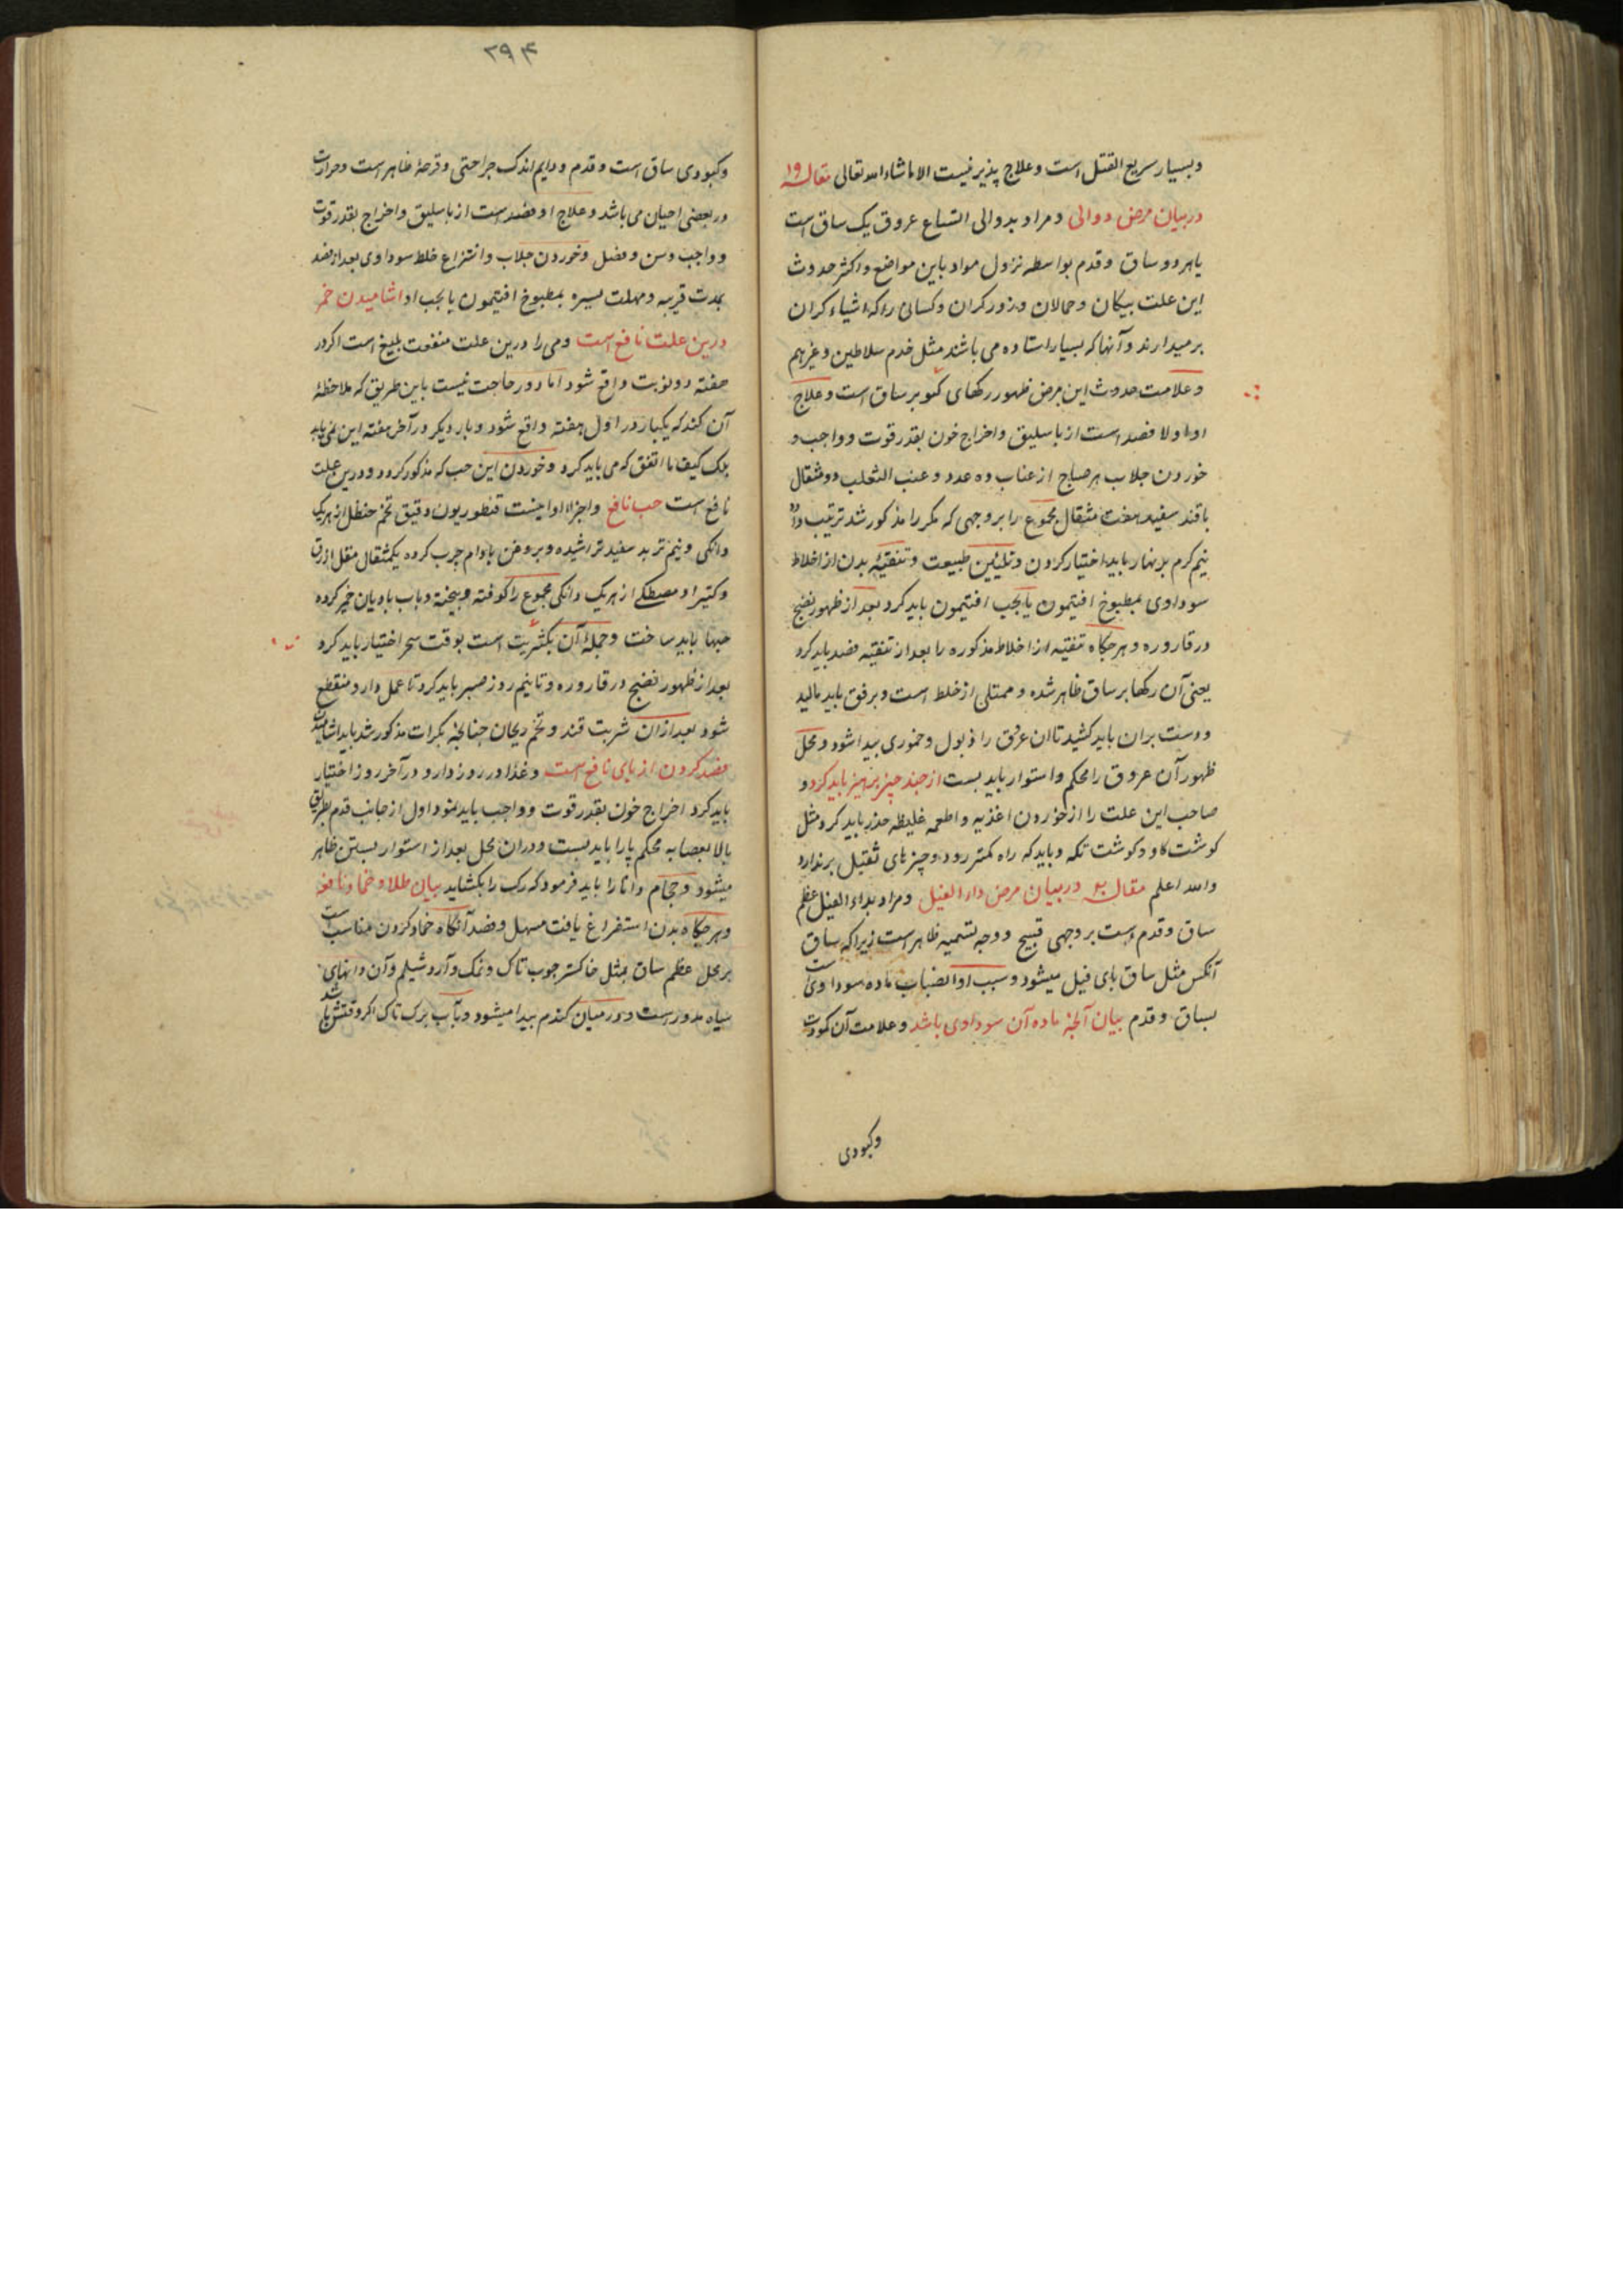 وبسیار سریع القتل است وعلاج پذیر نیست الا ماشاء الله تعالی مقاله ۱۹
دربیان مرض دوالی ومراد بدوالی اتساع عروق یک ساق است
یا هر دو ساق وقدم بواسطه نزول مواد باین مواضع واکثر حدوث
این علت پیکان وحمالان وبزرگران وکسانی راکه اشیاء کران
برمیدارند وآنها که بسیار استاده می باشند مثل خدم سلاطین وغیرهم
وعلامت حدوث این مرض ظهور رکهای کبو بر ساق است وعلاج
او اولا فصد است از باسلیق واخراج خون بقدر قوت وواجب و
خوردن جلاب هر صباح از عناب ده عدد وعنب الثعلب دو مثقال
باقند سفید هفت مثقال مجموع را بروجهی که مکررا مذکور شد ترتیب داده
نیم کرم بزنهار باید اختیار کردن وتلیین طبیعت وتنقیهٔ بدن از اخلاط
سوداوی بمطبوخ افتیمون یا بحب افتیمون باید کرد بعد از ظهور نضج
در قاروره وهرجکاه تنقیه از اخلاط مذکوره را بعد از تنقیه فصد باید کرد
یعنی آن رکها بر ساق ظاهر شده وممتلی از خلط است وبرفق باید مالید
ودست بران باید کشید تا ان عرق را ذبول وخموری پیدا شود ومحل
ظهور آن عروق را محکم واستوار باید بست از چند چیز پرهیز باید کرد و
صاحب این علت را از خوردن اغذیه واطعمه غلیظه حذر باید کرد مثل
کوشت کاو وکوشت تکه وباید که راه کمتر رود وچیزهای ثقیل برندارد
والله اعلم مقاله ۲۰ دربیان مرض داء الفیل ومراد بداء الفیل عظم
ساق وقدم است بر وجهی قبیح ووجه تسمیه ظاهر است زیراکه ساق
آنکس مثل ساق پای فیل میشود وسبب او انصباب ماده سوداوی است
بساق وقدم بیان آنچه ماده آن سوداوی باشد وعلامت آن کمودت
وکبودی
۲۹۴
وکبودی ساق است وقدم ودایم اندک جراحتی وقرحهٔ ظاهر است وحرارت
در بعضی احیان می باشد وعلاج او فصد است از باسلیق واخراج بقدر قوت
وواجب وسن وفصل وخوردن جلاب وانتزاع خلط سوداوی بعد از فصد
بمدت قریبه ومهلت یسیره بمطبوخ افتیمون یا بحب او اشامیدن خمر
درین علت نافع است ومی را درین علت منفعت بلیغ است اکر در
هفته دو نوبت واقع شود اما دور حاجت نیست باین طریق که ملاحظهٔ
آن کند که یکبار در اول هفته واقع شود وبار دیکر در آخر هفته این نمی باید
بلکه کیف ما اتفق که می باید کرد وخوردن این حب که مذکور کردد ودرین علت
نافع است حب نافع واجزاء او اینست قنطوریون دقیق تخم حنظل از هریک
دانکی ونیم تربد سفید تراشیده وبروغن بادام چرب کرده یکمثقال مقل ازرق
وکتیرا ومصطکی از هریک دانکی مجموع را کوفته وبیخته وباب بادیان خمیر کرده
حبها باید ساخت وجملهٔ آن یکشربت است بوقت سحر اختیار باید کرد
بعد از ظهور نضج در قاروره وتا نیم روز صبر باید کرد تا عمل دارو منقطع
شود بعد ازان شربت قند وتخم ریحان چنانچهٔ بکرات مذکور شد باید اشامیدن
فصد کردن از پای نافع است وغذا در روز دارو در آخر روز اختیار
باید کرد اخراج خون بقدر قوت وواجب باید نمود اول از جانب قدم بطریق
بالا بعصابه محکم پارا باید بست ودران محل بعد از استوار بستن ظاهر
میشود وحجام دانا را باید فرمود که رک را بکشاید بیان طلا وضماد نافعه
وهرجکاه بدن استفراغ یافت مسهل وفصد آنکاه ضماد کردن مناسب است
بر محل عظم ساق بمثل خاکستر چوب تاک ونمک وآرد شیلم وآن دانهای
سیاه مدور است ودر میان کندم پیدا میشود وبآب برک تاک اکر وقتش باشد